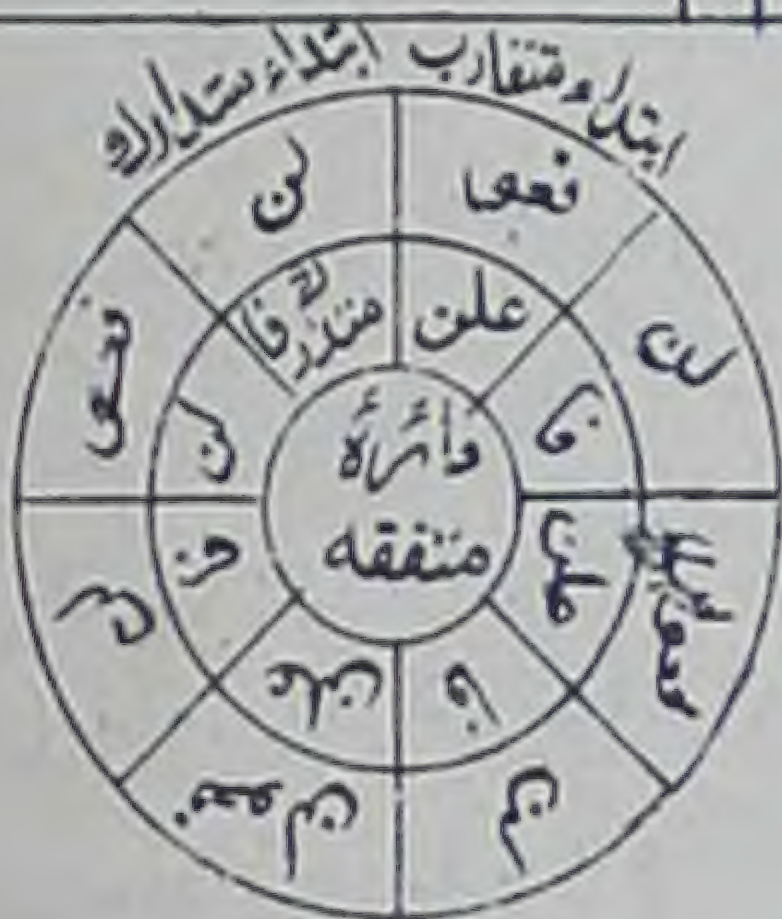 ابتداء متقارب
ابتداء متدارك
فعو
لن
لن
فعو
لن
فعو
لن
علن
فا
علن
فا
علن
فا
لن
فا
دائرۂ
متفقه